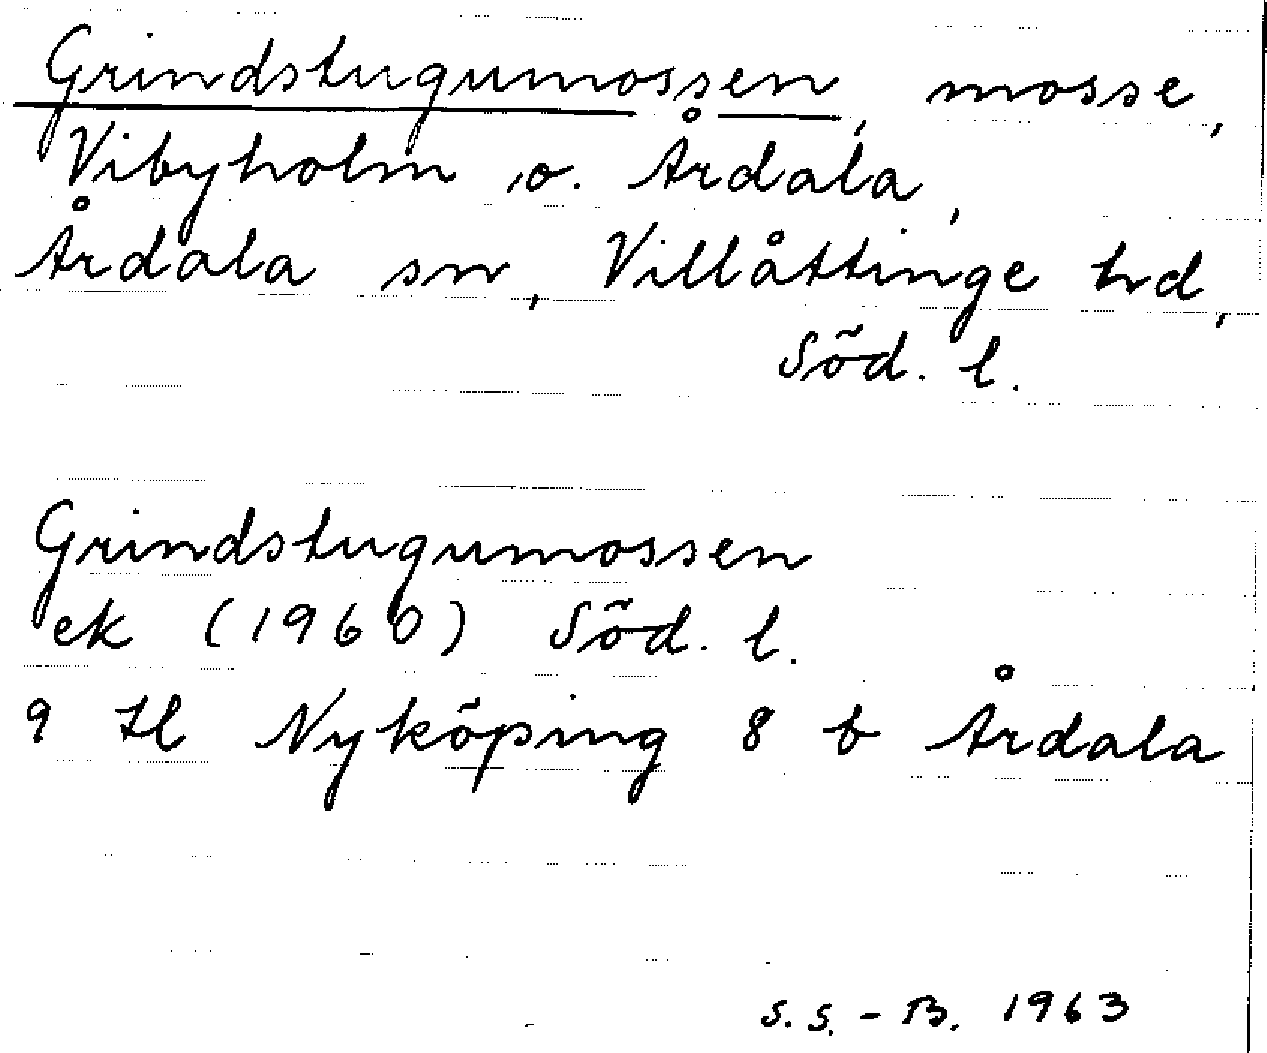 Grindstugumossen, mosse,
Vibyholm o. Årdala,
Årdala sn, Villåttinge hd,
Söd. l.
Grindstugumossen
ek (1960) Söd. l.
9 H Nyköping 8 b Årdala
S. S. - B. 1963